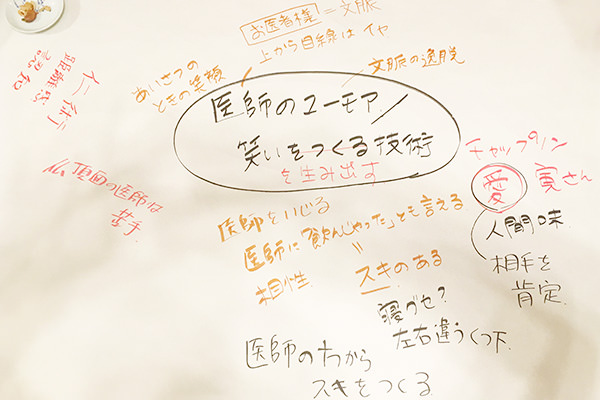 お医者様 = 文脈
上から目線は イヤ
文脈の逸脱
あいさつの
ときの笑顔
距離感
仁術
医師のユーモア/
笑いをつくる技術
を生み出す
チャップリン
愛 寅さん
人間味
相手を
肯定
仏頂面の医師は
苦手
医師をいじる
医師に「飲んじゃった」とも言える
=
相性 スキのある
寝グセ?
左右違うくつ下
医師のわから
スキをつくる